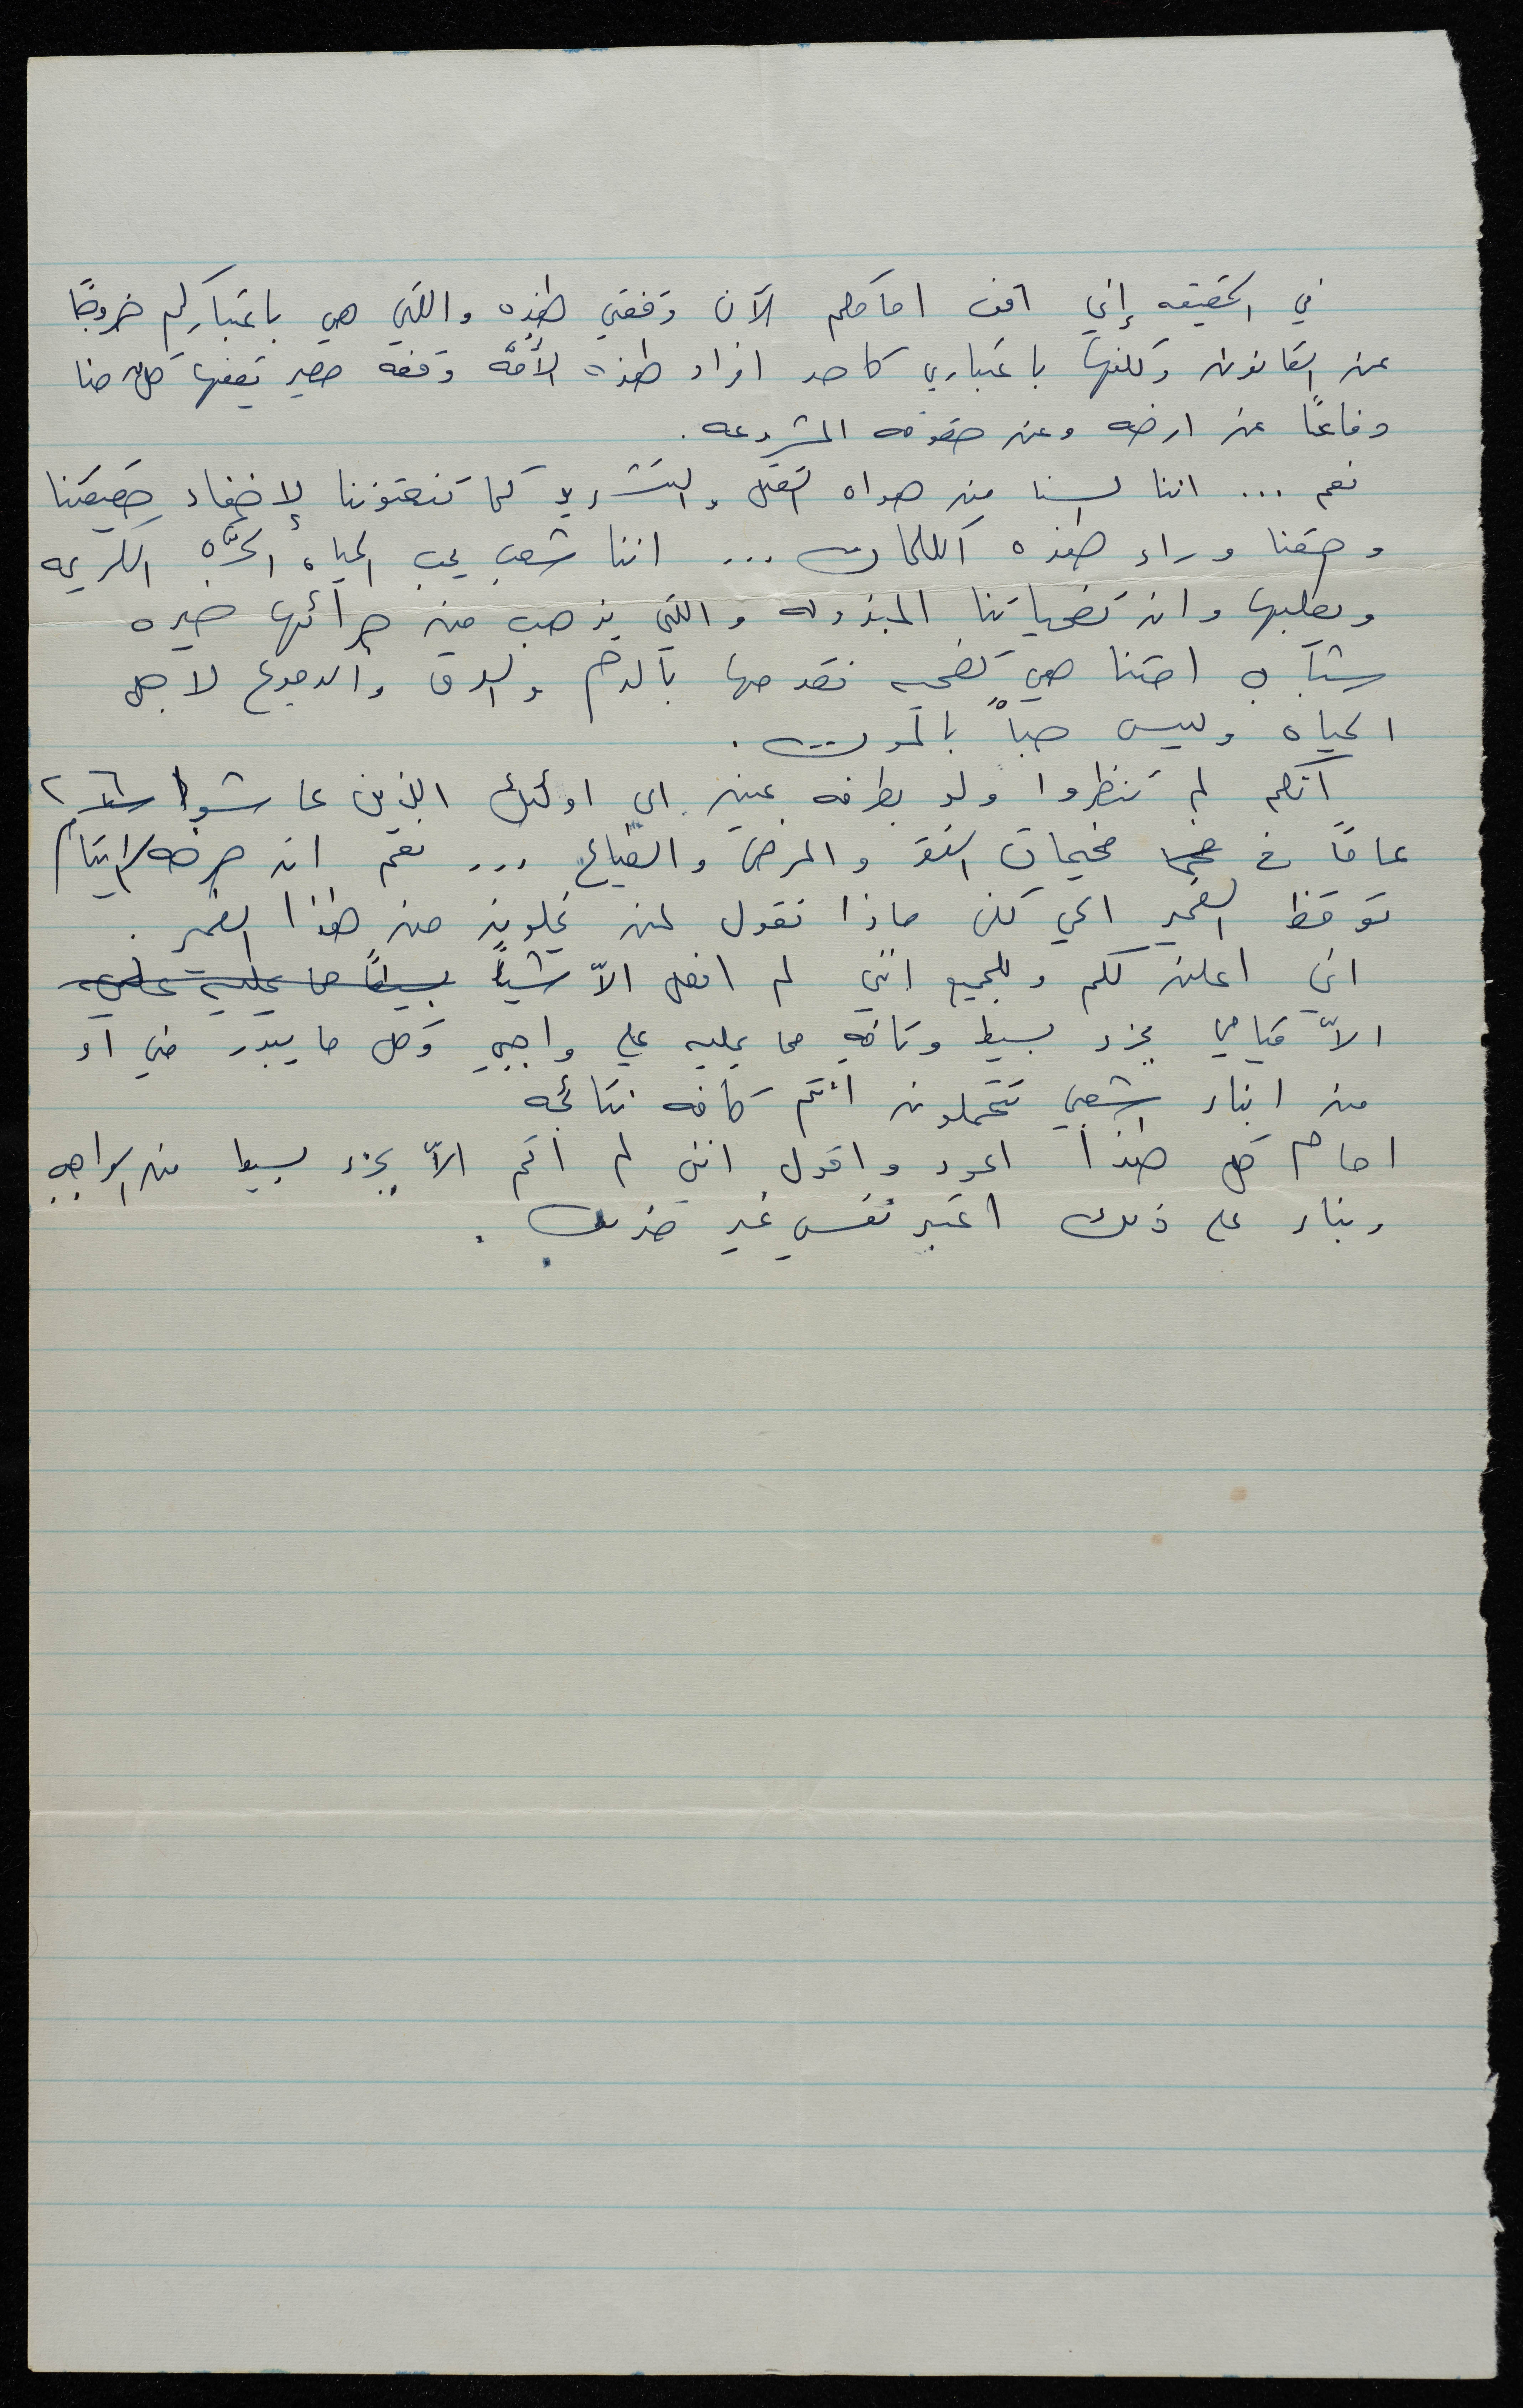 في الحقيقه إني اقف امامكم الآن وقفتي هذه واللتي هي باعتباركم خروجًا
عن القانون ولكنها باعتباري كاحد افراد هذه الأمّه وقفه مصير يقفها كل منا
دفاعًا عن ارضه وعن حقوقه المشروعه.
نعم ... اننا لسنا من هواه القتل والتشريد كما تنعتوننا لإخفاء حقيقتنا
وحقنا وراء هذه الكلمات ... اننا شعب يحب الحياه الحرّه الكريمه
ويطلبها وان تضحياتنا المبذوله واللتي يذهب من جرائها خيره
شباب امتنا هي تضحيه نقدمها بالدم والعرق والدموع لاجل
الحياه وليس حباً بالموت.
انكم لم تنظروا ولو بطرفه عين الى اولئك الذين عاشوا ٢٦
عامًا في مخيمات الفقر والمرض والضياع ... نعم ان صرخه الايتام
توقظ الضمير الحي لكن ماذا نقول لمن يخلون من هذا الضمير.
اني اعلن لكم وللجميع انني لم افعل الاّ شيئاً بسيطاً مما يمليه علي
الاّ قيامي بجزء بسيط وتافه مما يمليه علي واجبي وكل ما يبدر مني او
من ابناء شعبي تتحملون انتم كافه نتائجه
امام كل هذا اعود واقول انني لم اقم الاّ بجزء بسيط من الواجب
وبناء على ذلك اعتبر نفسي غير مذنب.